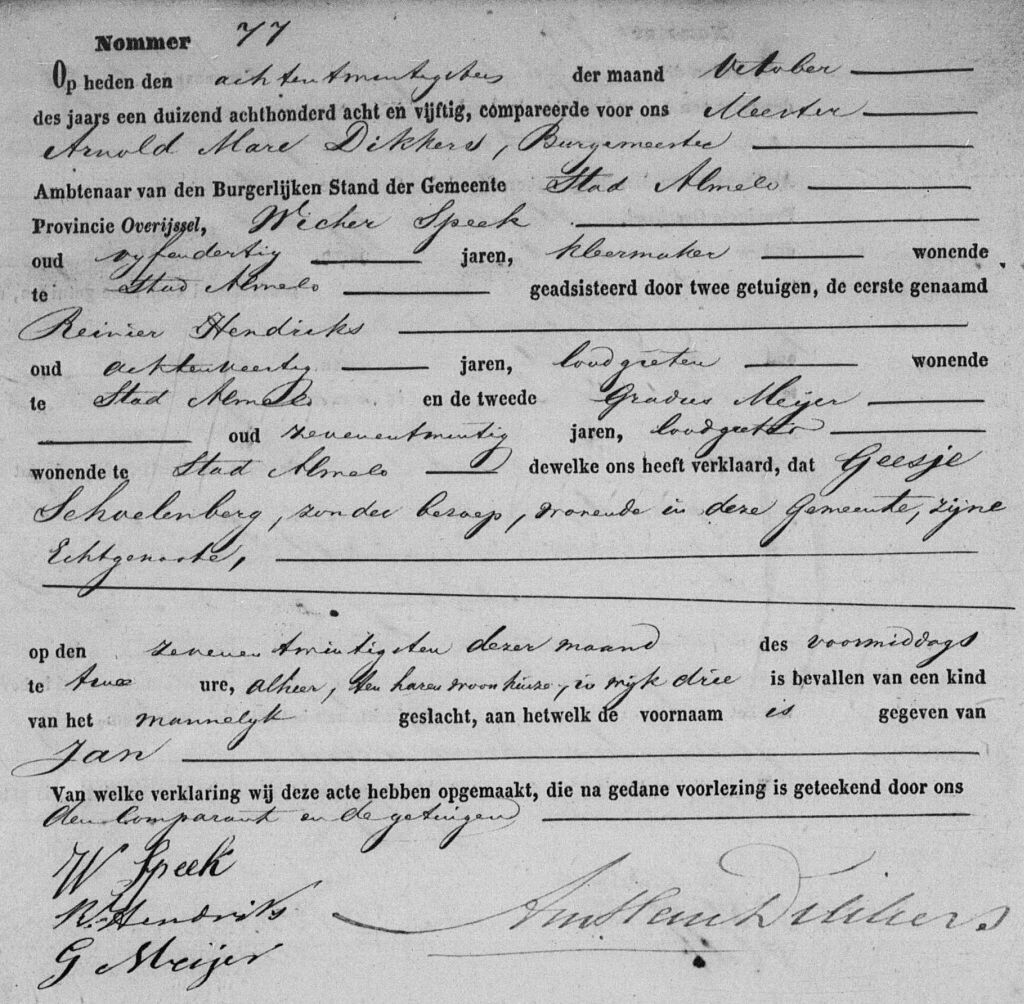 Nommer 77
Op heden den achtentwintigsten der maand October
des jaars een duizend achthonderd acht en vijftig, compareerde voor ons Meester
Arnold Marc Dikkers, Burgemeester
Ambtenaar van den Burgerlijken Stand der Gemeente Stad Almelo
Provincie Overijssel, Wicher Speek
oud vyfendertig jaren, kleermaker wonende
te Stad Almelo geadsisteerd door twee getuigen, de eerste genaamd
Reinier Hendriks
oud achtenveertig jaren, loodgieter wonende
te Stad Almelo en de tweede Gradus Meijer
oud zevenentwintig jaren, loodgieter
wonende te Stad Almelo dewelke ons heeft verklaard, dat Geesje
Schoelenberg, zonder beroep, wonende in deze Gemeente, zijne
Echtgenoote,
op den zevenentwintigsten dezer maand des voormiddags
te twee ure, alhier, ten haren woonhuize, in wijk drie is bevallen van een kind
van het mannelyk geslacht, aan hetwelk de voornaam is gegeven van
Jan
Van welke verklaring wij deze acte hebben opgemaakt, die na gedane voorlezing is geteekend door ons
den Comparant en de getuigen
W Speek
R. Hendriks
G Meijer
Dikkers